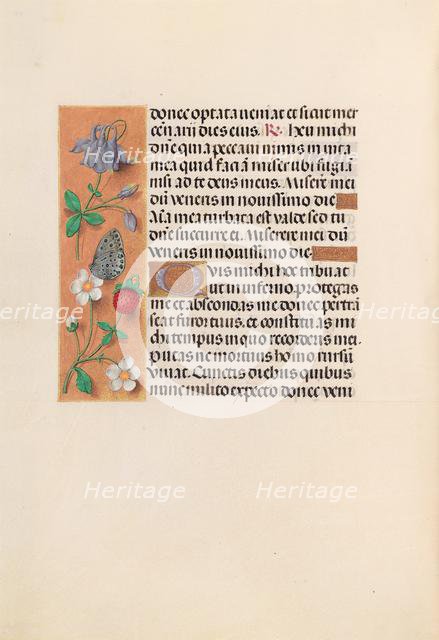 donec optata veniat et sicut mer
cen arii dies eius. R. heu michi
dñe quia peccaui nimis in uita
mea quid faciā miser ubi fugiā
nisi ad te deus meus. Miserere mei
dū veneris in nouissimo die
Aīa mea turbata est valde sed tu
dñe succurre ei. Miserere mei dū
veneris in nouissimo die
Quis michi hoc tribuat
ut in inferno protegas
me et abscondas me donec pertrā
seat furor tuus. et constituas mi
chi tempus in quo recorderis mei.
putas ne mortuus homo rursū
viuat. Cunctis diebus quibus
nunc milito expecto donec veni
Heritage Heritage
Heritage Heritage
Heritage Heritage